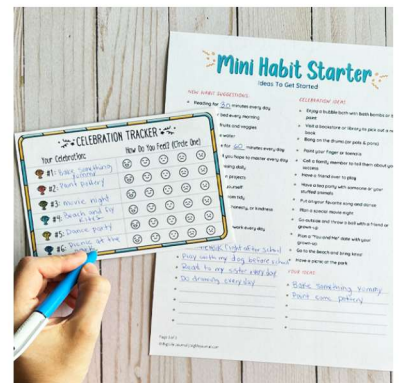 Mini Habit Starter
Ideas To Get Started
NEW HABIT SUGGESTIONS
CELEBRATION IDEAS
Reading for 30 minutes every day
bed every morning
fruits and veggies
water
for 60 minutes every day
you hope to master every day
using daily
projects
yourself
honesty, or kindness
work every day
right after school
Play with my dog before school
Read to my sister every day
Do drawing every day
Enjoy a bubble bath with bath bombs or
Visit a bookstore or library to pick out a new
book
Bang on the drums (or pots & pans)
Paint your finger or toenails
Call a family member to tell them about your
success
Have a friend over to play
Have a tea party with some or your
stuffed animals
Put on your favorite song and dance
Plan a special movie night
Go outside and throw a ball with a friend or
grown-up
Plan a "You and Me" date with your
grown-up
Go to the beach and bring lunch
Have a picnic at the park
YOUR IDEAS
Bake something yummy
Paint some pottery
CELEBRATION TRACKER
Your Celebration:
How Do You Feel? (Circle One)
#1: Bake something
yummy
#2: Paint pottery
#3: Movie night
#4: Beach and fly
kites
#5: Dance party
#6: Picnic at the